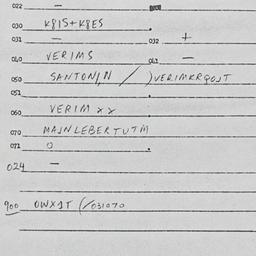 022 —
030 K8IS+K8ES
031 — 032 +
040 VERIMS 041 —
050 SANTONIN / )VERIMKRQOJT
051
060 VERIM XX
070 MAINLEBERTUTM
071 0
024 —
900 OWX1T (/031070